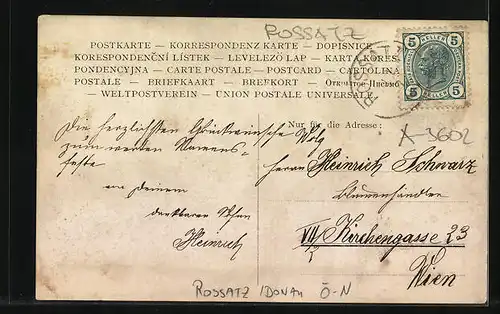 ROSSATZ
POSTKARTE — KORRESPONDENZ KARTE — DOPISNICE
KORESPONDENČNÍ LÍSTEK — LEVELEZŐ LAP — KARTA KORES
PONDENCYJNA — CARTE POSTALE — POSTCARD — CARTOLINA
POSTALE — BRIEFKAART — BREFKORT — Открытое Письмо
— WELTPOSTVEREIN — UNION POSTALE UNIVERSALE.
5 HELLER 5
5 5
Nur für die Adresse:
X-3602
Die herzlichsten Glückwünsche
zum werten Namens-
feste
an Deinem
dankbaren Sohn
Heinrich
Herrn Heinrich Schwarz
Blumenhändler
VII Kirchengasse 23
Wien
ROSSATZ /DONAU Ö-N